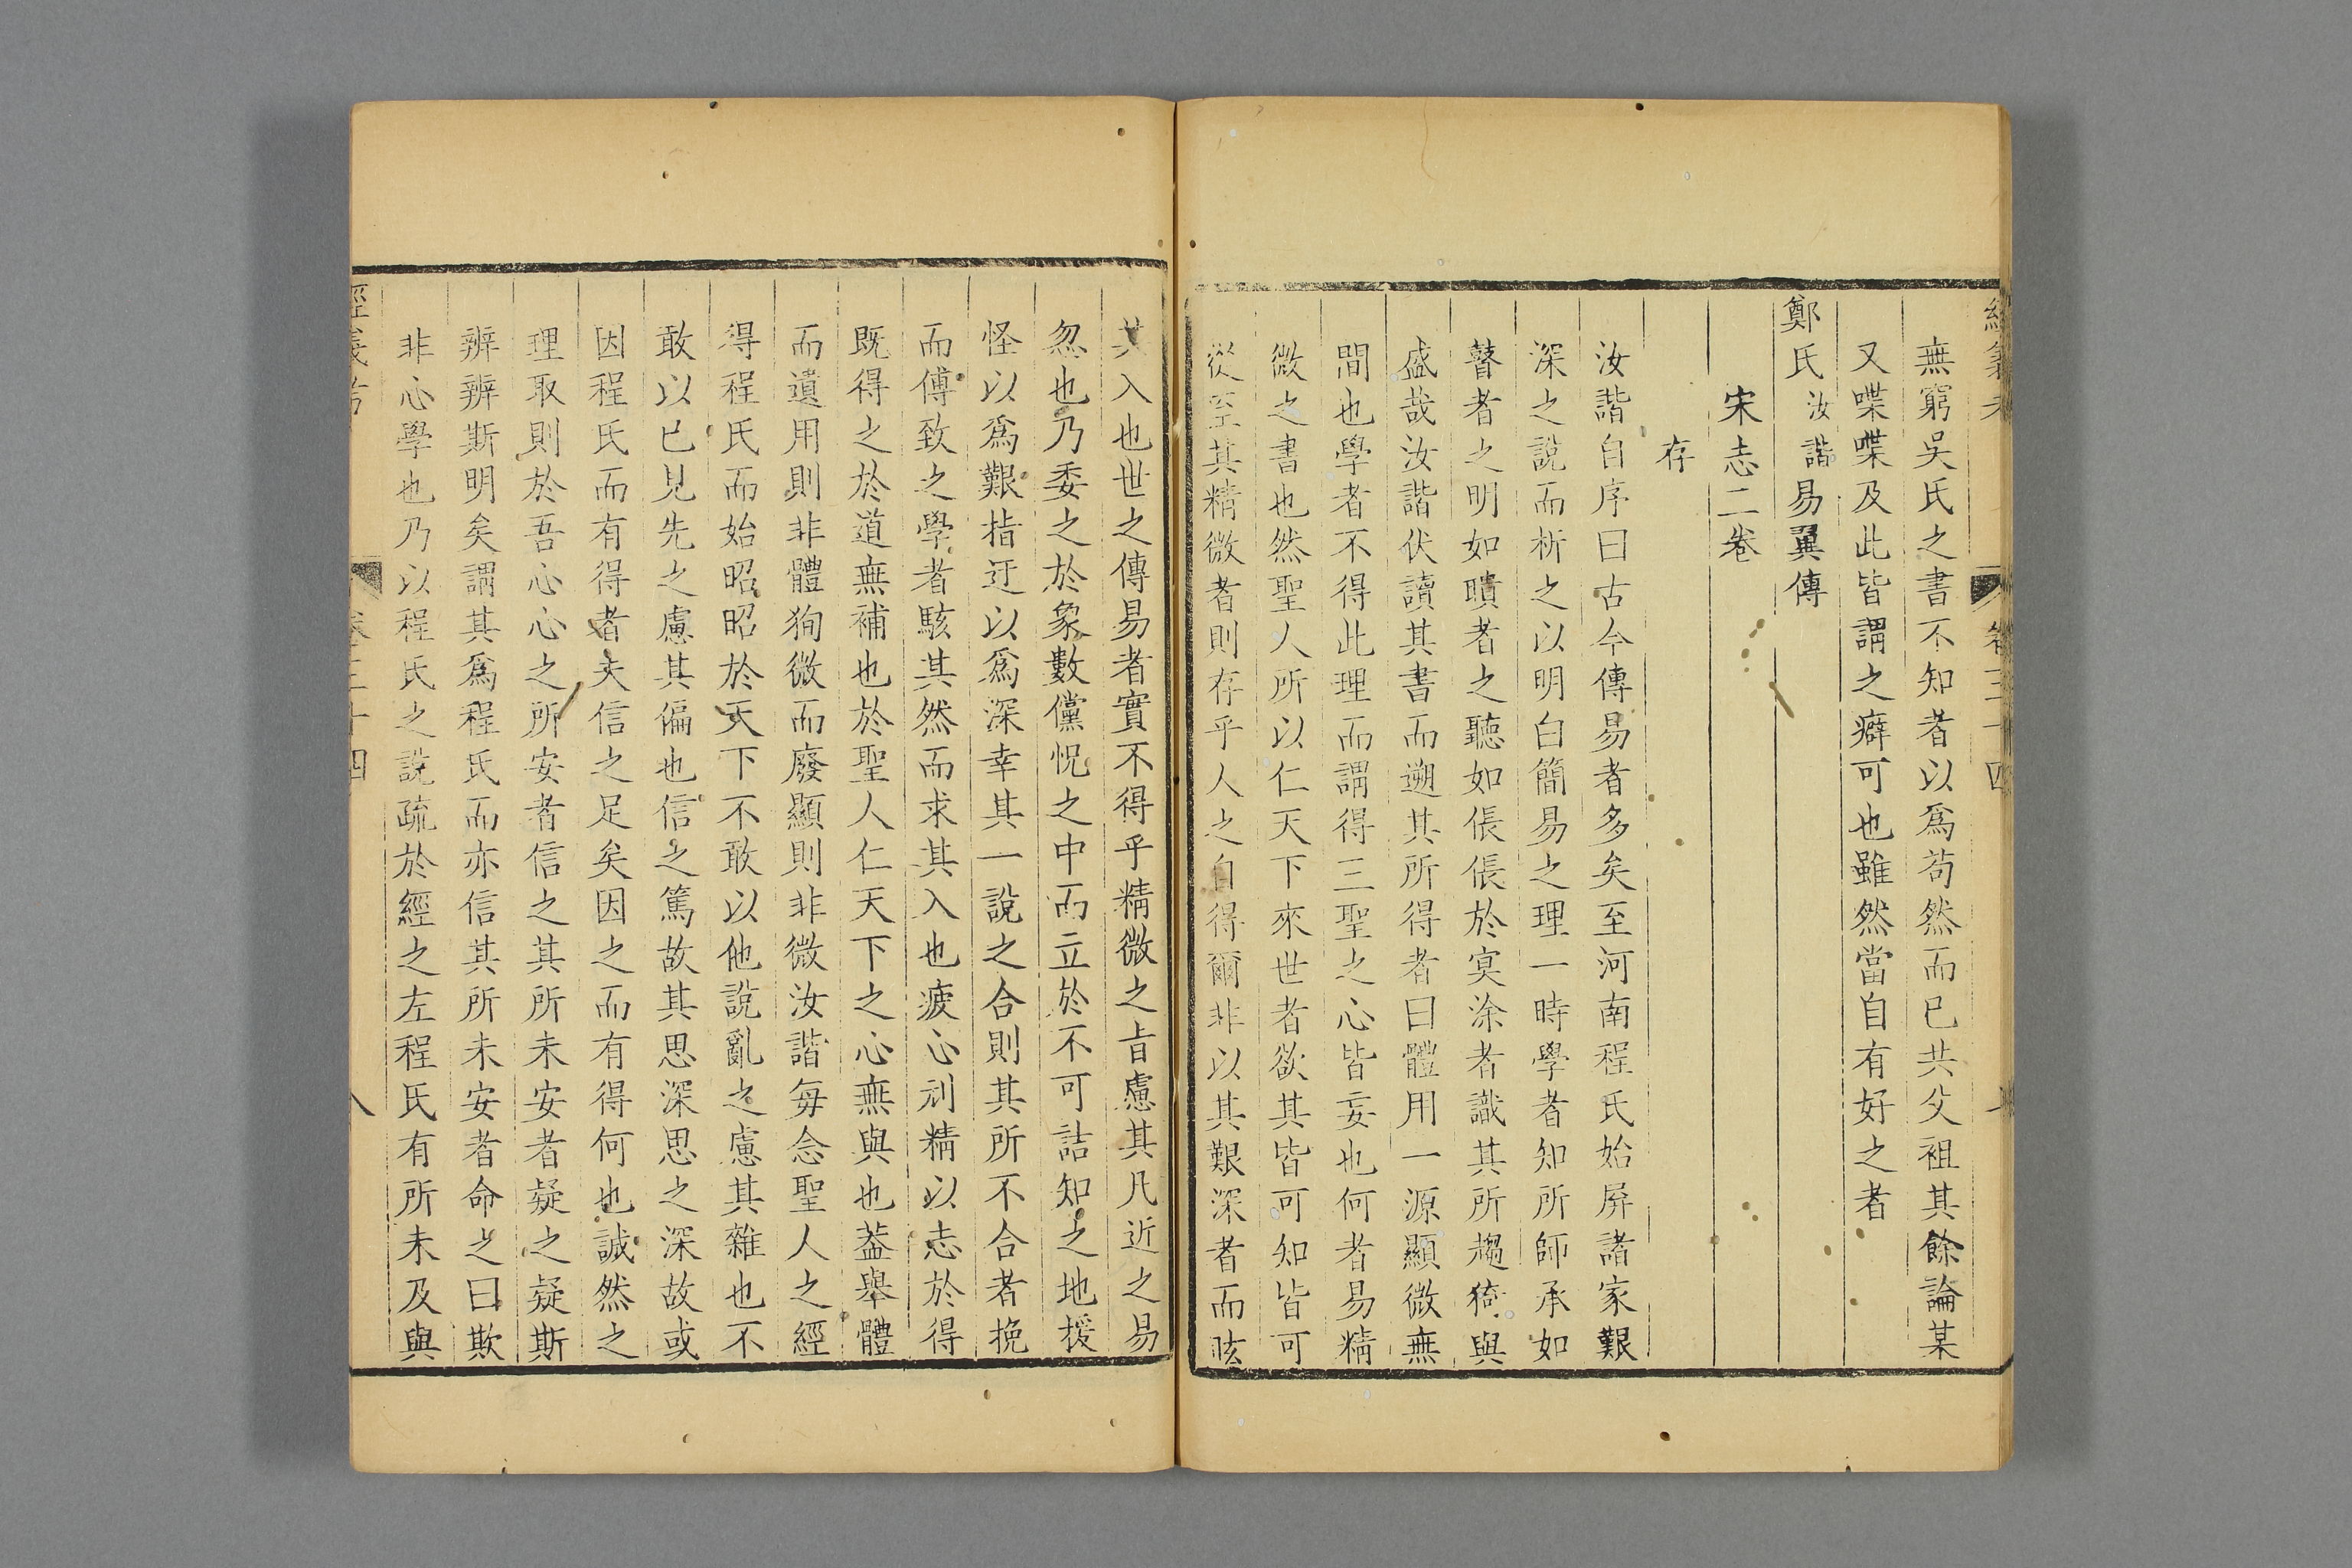 無窮吳氏之書不知者以爲苟然而已共父祖其餘論某
又喋喋及此皆謂之癖可也雖然當自有好之者
鄭氏汝諧易翼傳
宋志二卷
存
汝諧自序曰古今傳易者多矣至河南程氏始屏諸家艱
深之說而析之以明白簡易之理一時學者知所師承如
瞽者之明如聵者之聽如倀倀於冥涂者識其所趨猗與
盛哉汝諧伏讀其書而遡其所得者曰體用一源顯微無
間也學者不得此理而謂得三聖之心皆妄也何者易精
微之書也然聖人所以仁天下來世者欲其皆可知皆可
從至其精微者則存乎人之自得爾非以其艱深者而眩
其入也世之傳易者實不得乎精微之旨慮其凡近之易
忽也乃委之於象數儻怳之中而立於不可詰知之地援
怪以爲艱指迂以爲深幸其一說之合則其所不合者挽
而傅致之學者駭其然而求其入也疲心刓精以志於得
既得之於道無補也於聖人仁天下之心無與也蓋舉體
而遺用則非體狥微而廢顯則非微汝諧每念聖人之經
得程氏而始昭昭於天下不敢以他說亂之慮其雜也不
敢以已見先之慮其偏也信之篤故其思深思之深故或
因程氏而有得者夫信之足矣因之而有得何也誠然之
理取則於吾心心之所安者信之其所未安者疑之疑斯
辨辨斯明矣謂其爲程氏而亦信其所未安者命之曰欺
非心學也乃以程氏之說疏於經之左程氏有所未及與
經義考
卷三十四
八